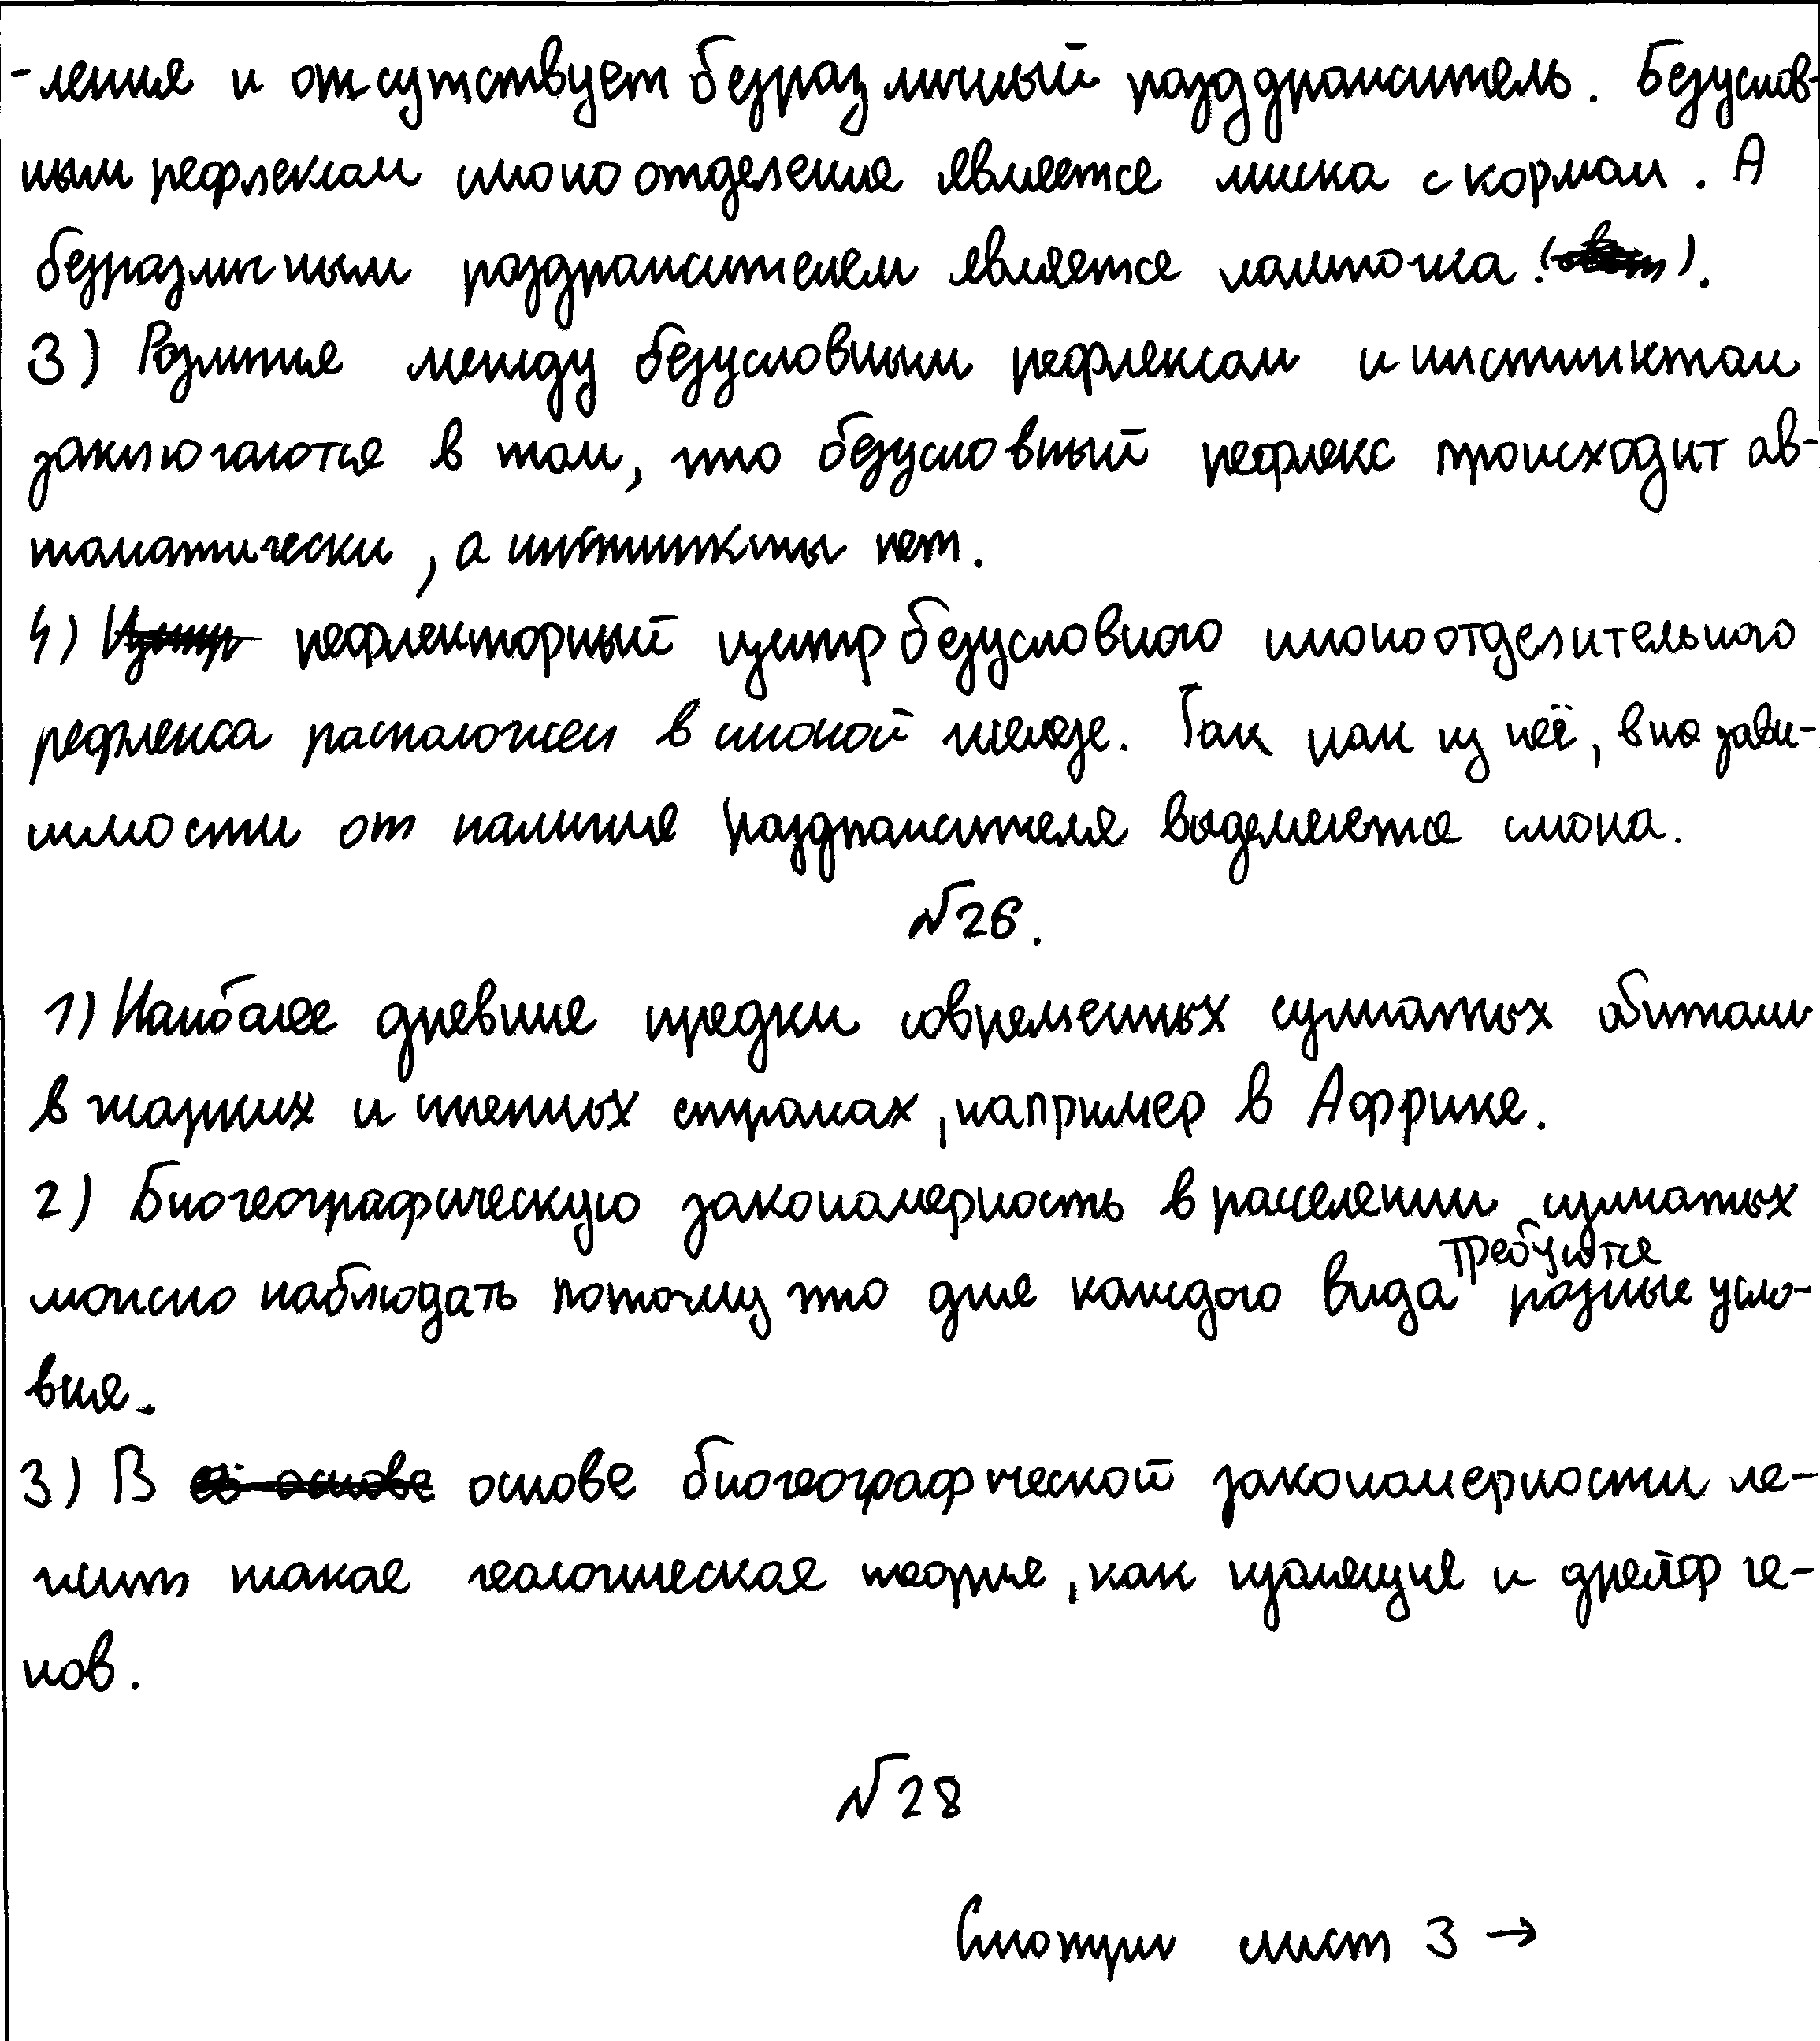 -ления и отсутствует безразличный раздражитель. Безуслов-
ным рефлексом слюноотделения является миска с кормом. А
безразличным раздражителем является лампочка.
3) Различие между безусловным рефлексом и инстинктом
заключаются в том, что безусловный рефлекс происходит ав-
томатически, а инстинкты нет.
4) рефлекторный центр безусловного слюноотделительного
рефлекса расположен в слюной железе. Так как из неё, в не зави-
симости от наличия раздражителя выделяется слюна.
№26.
1) Наиболее древние предки современных сумчатых обитали
в жарких и степных странах, например в Африке.
2) Биогеографическую закономерность в расселении сумчатых
можно наблюдать потому что для каждого вида требуются разные усло-
вия.
3) В основе биогеографической закономерности ле-
жит такая геологическая теория, как изоляция и дрейф ге-
нов.
№28
Смотри лист 3 →